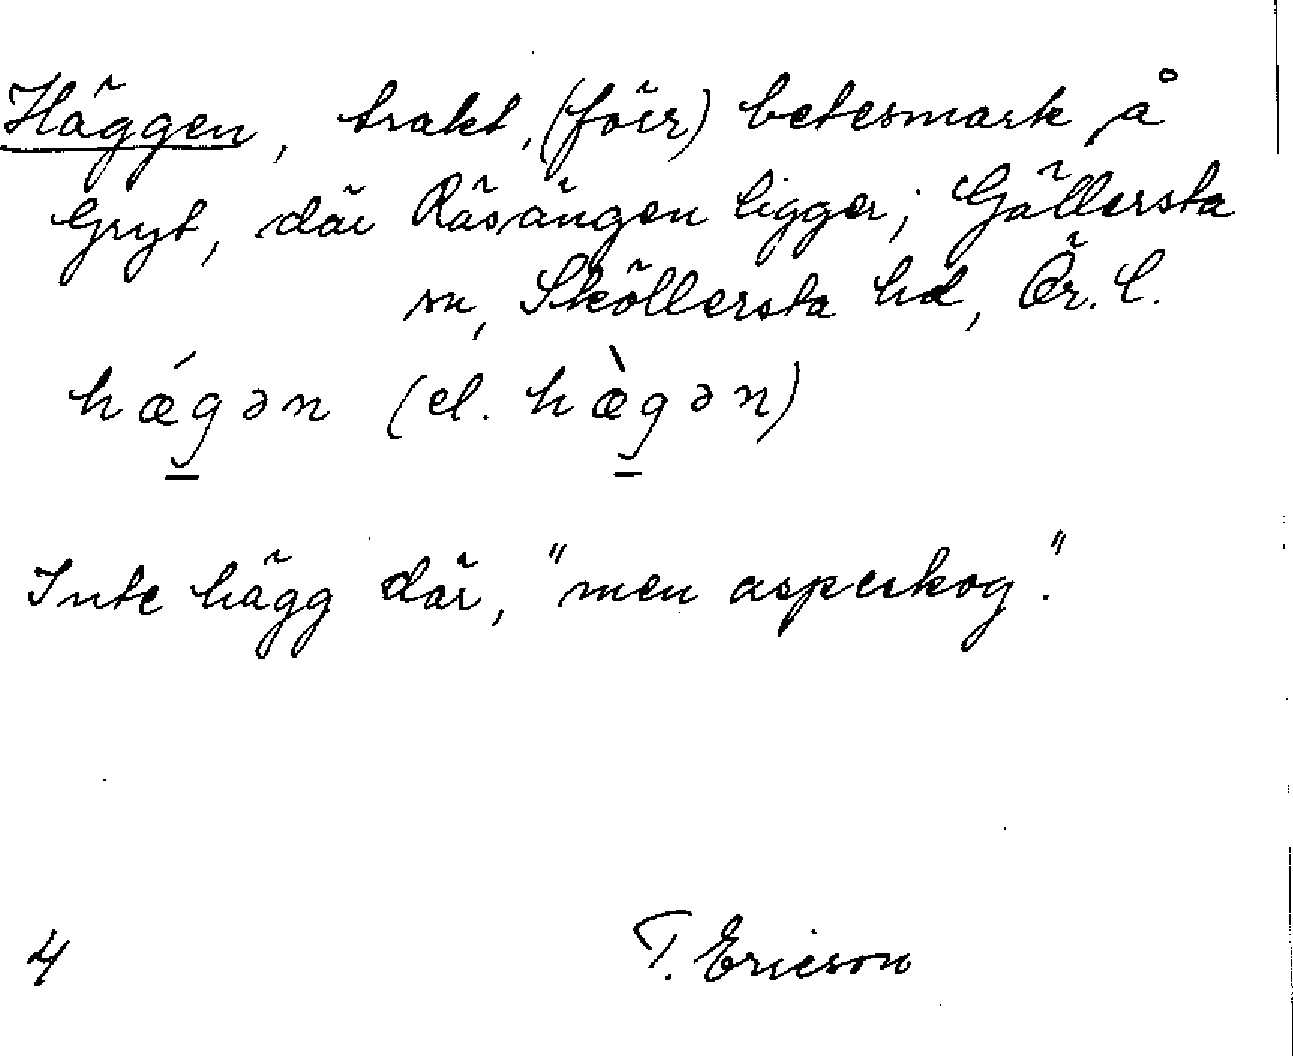 Häggen, trakt, (förr) betesmark å
Gryt, där Räsängen ligger; Gällersta
sn, Sköllersta hd, Ör. l.
hǽg̠ən (el. hæ̀g̠ən)
Inte hägg där, "men aspskog".
4 T. Ericson